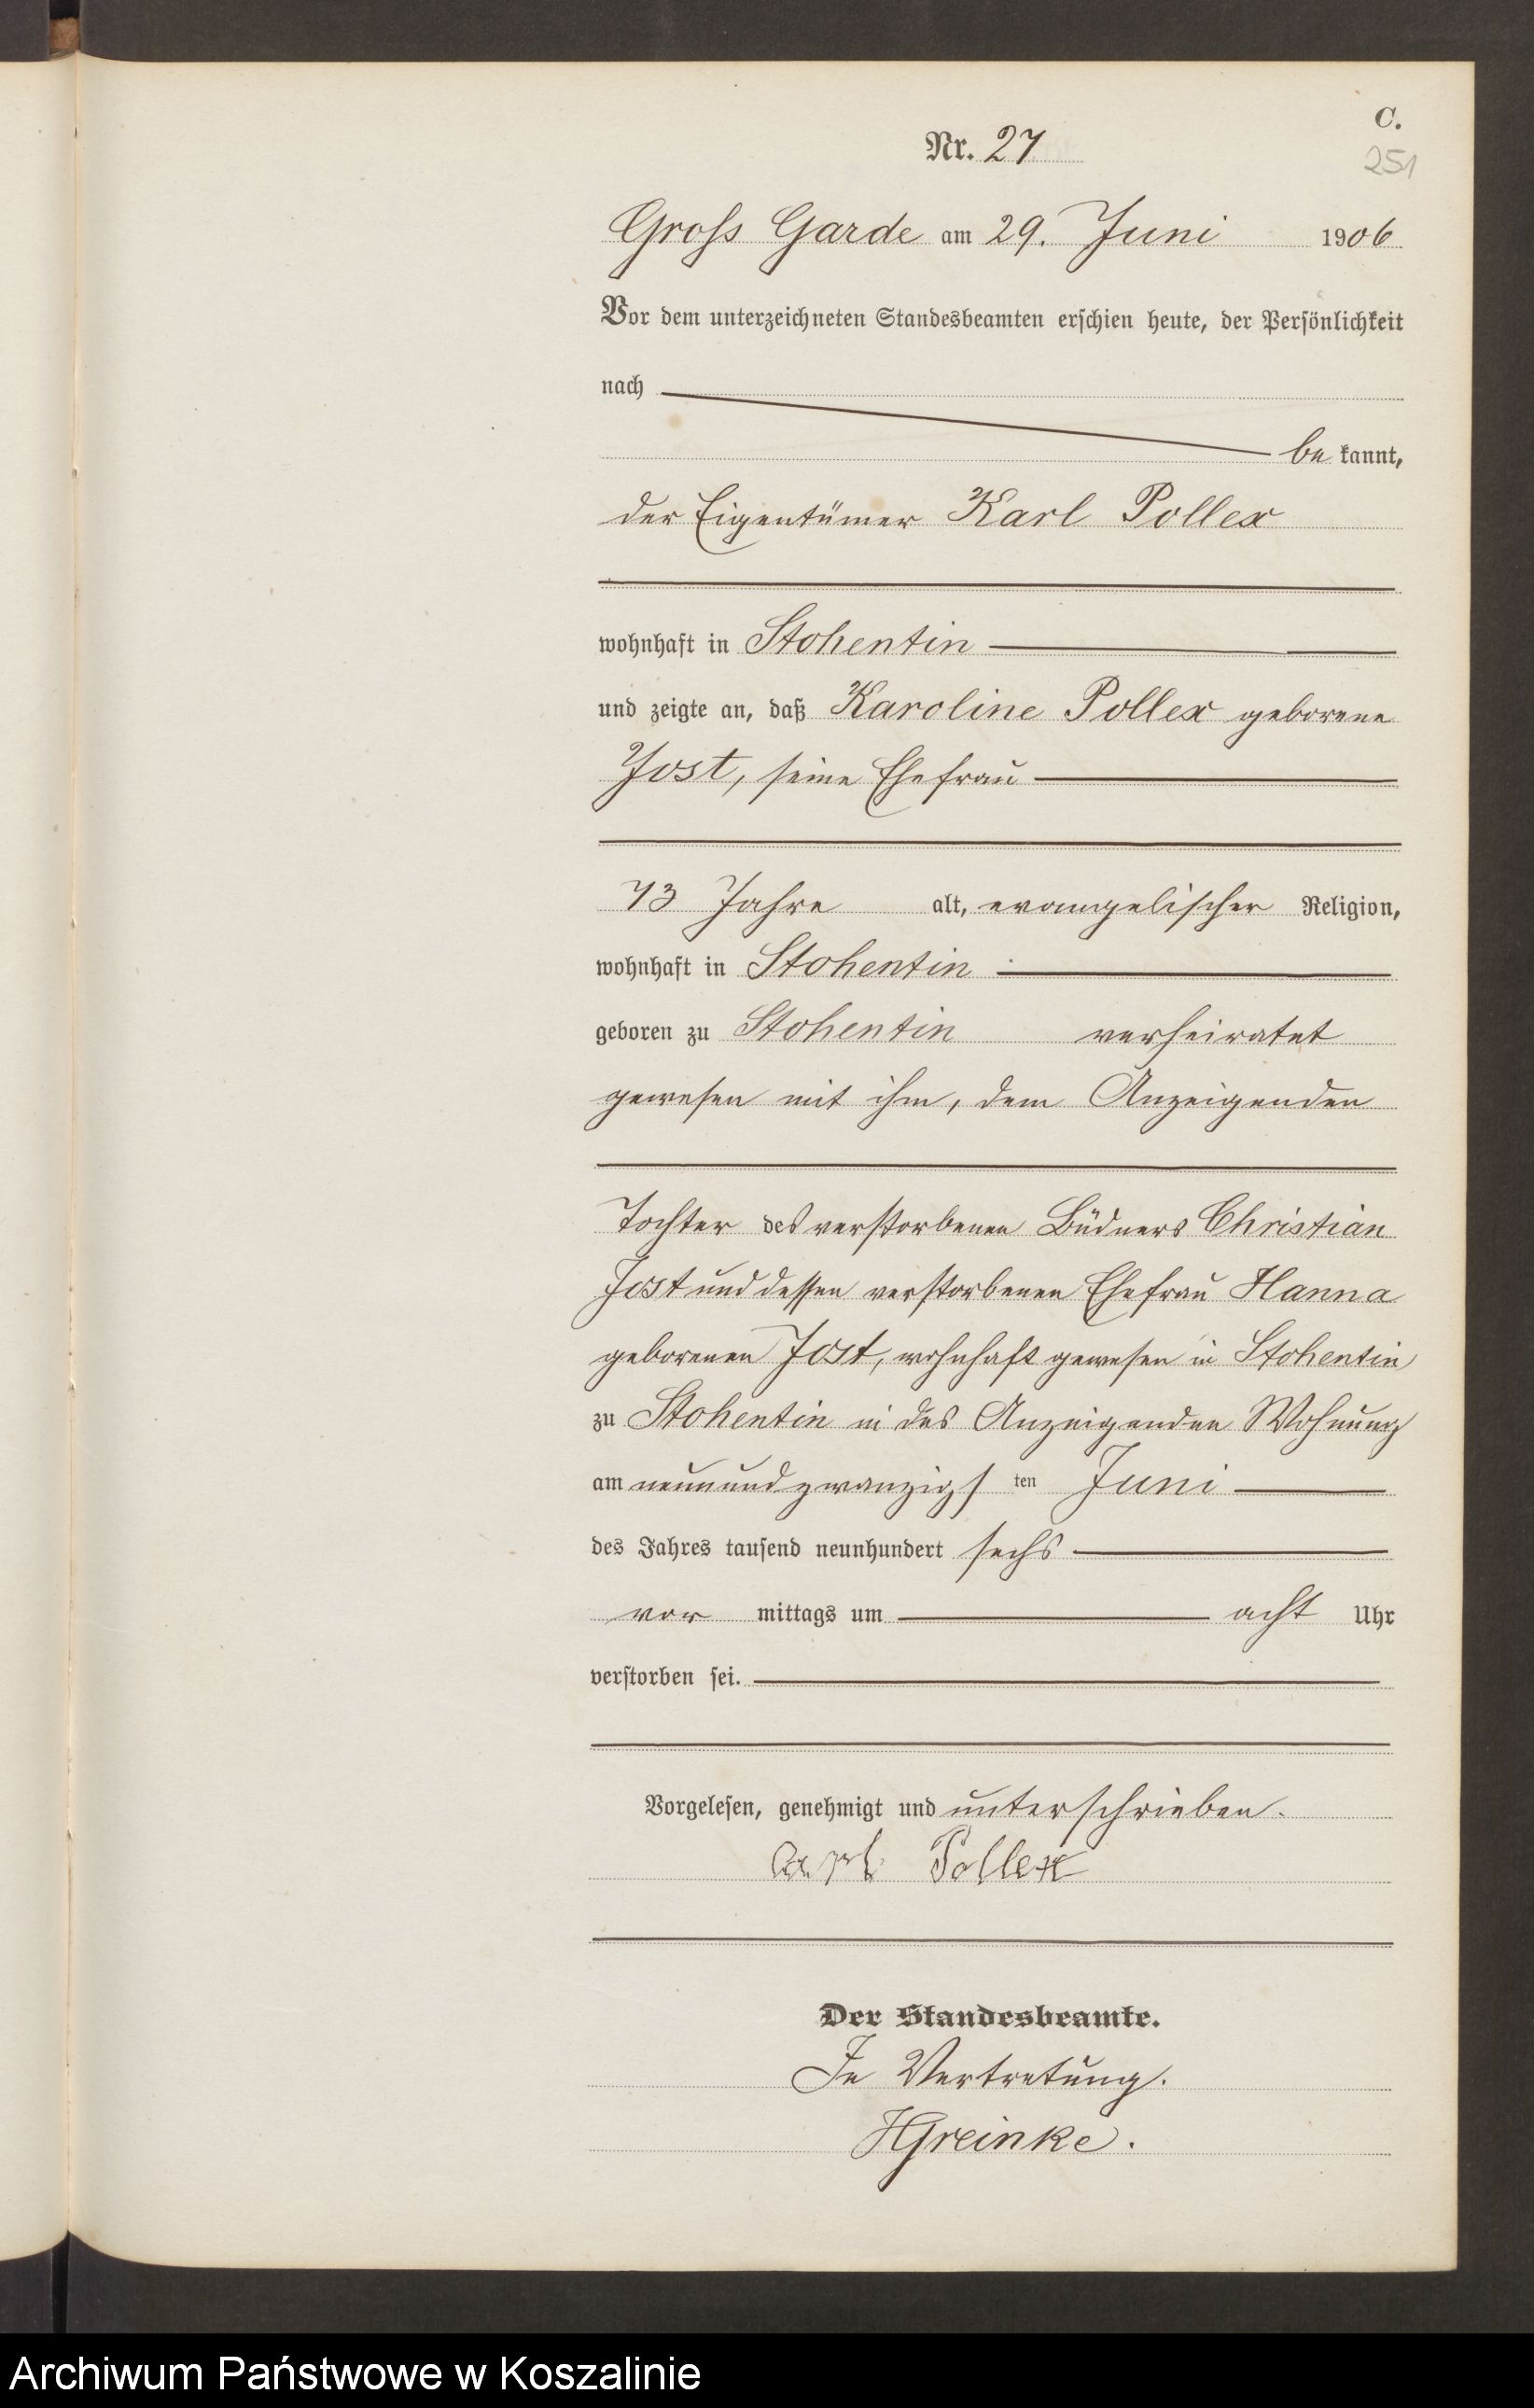 C.
Nr. 27
251
Gross Garde am 29. Juni 1906
Vor dem unterzeichneten Standesbeamten erschien heute, der Persönlichkeit
nach
be kannt,
der Eigentümer Karl Pollex
wohnhaft in Stohentin
und zeigte an, daß Karoline Pollex geborene
Jost, seine Ehefrau
73 Jahre alt, evangelischer Religion,
wohnhaft in Stohentin
geboren zu Stohentin verheiratet
gewesen mit ihm, dem Anzeigenden
Tochter des verstorbenen Büdners Christian
Jost und dessen verstorbenen Ehefrau Hanna
geborenen Jost, wohnhaft gewesen in Stohentin
zu Stohentin in des Anzeigenden Wohnung
am neunundzwanzigs ten Juni
des Jahres tausend neunhundert sechs
vor mittags um acht Uhr
verstorben sei.
Vorgelesen, genehmigt und unterschrieben.
Carl Pollex
Der Standesbeamte.
In Vertretung.
HGreinke.
Archiwum Państwowe w Koszalinie